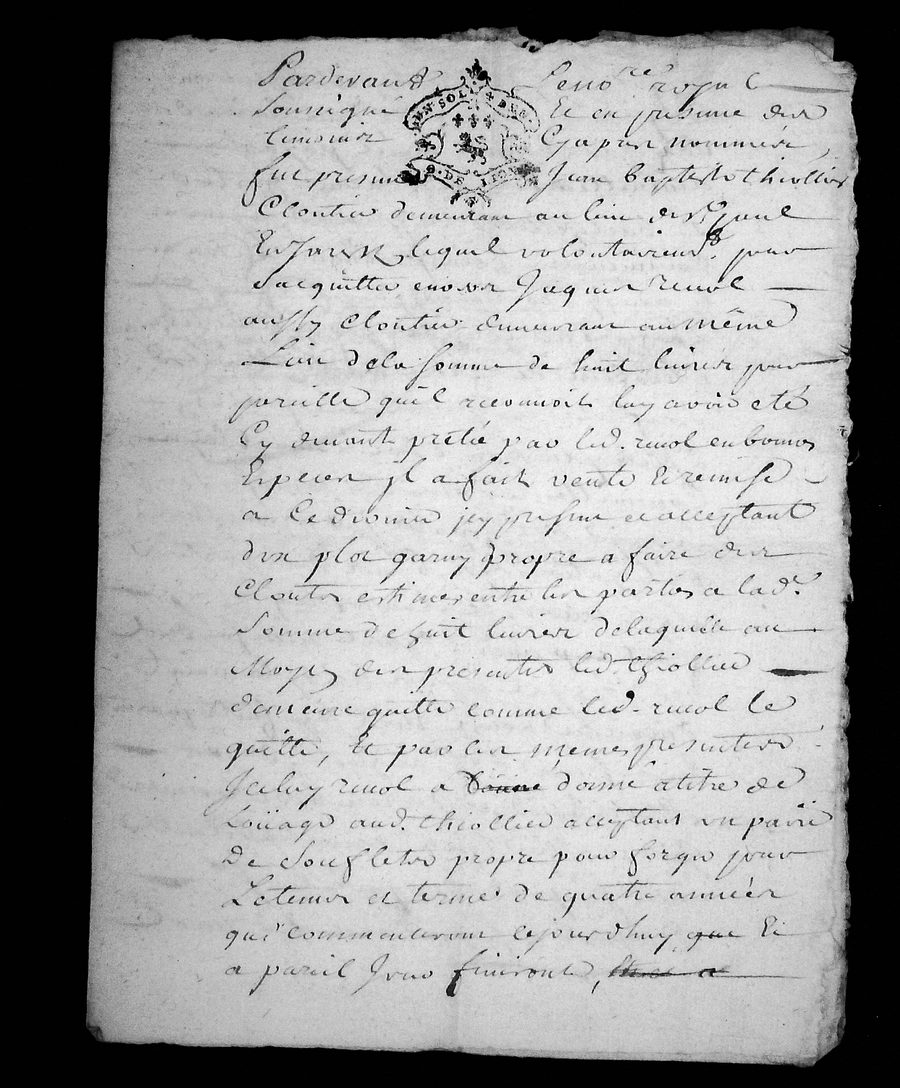 Pardevant Le no.re royal
Soussigné Et en presence des
temoins Cy apres nommés,
fut present Jean baptiste thiollier
Cloutier demeurant au lieu de St. paul
En Jarest, lequel volontairem.t pour
Sacquitter envers Jaques revol
aussy Cloutier demeurant au même
Lieu de la Somme de huit livres pour
pareille quil reconnoit luy avoir eté
Cy devant prétée par led. revol en bonnes
Especes il a fait vente Et remise
a Ce dernier icy present et acceptant
d'un plot garny propre a faire des
Cloutes estimés entre les parties a lad.e
Somme de huit livres de laquelle au
Moyen des presentes led. thiollier
demeure quitte comme led. revol le
quitte, Et par les mêmes presentes
Iceluy revol a donné a titre de
Loüage aud. thiollier acceptant un paire
de Soufflets propre pour forge pour
Le tems et terme de quatre années
qui commenceront cejourdhuy que Et
a pareil Jour finiront,
DEN. SOL
G. DE LION